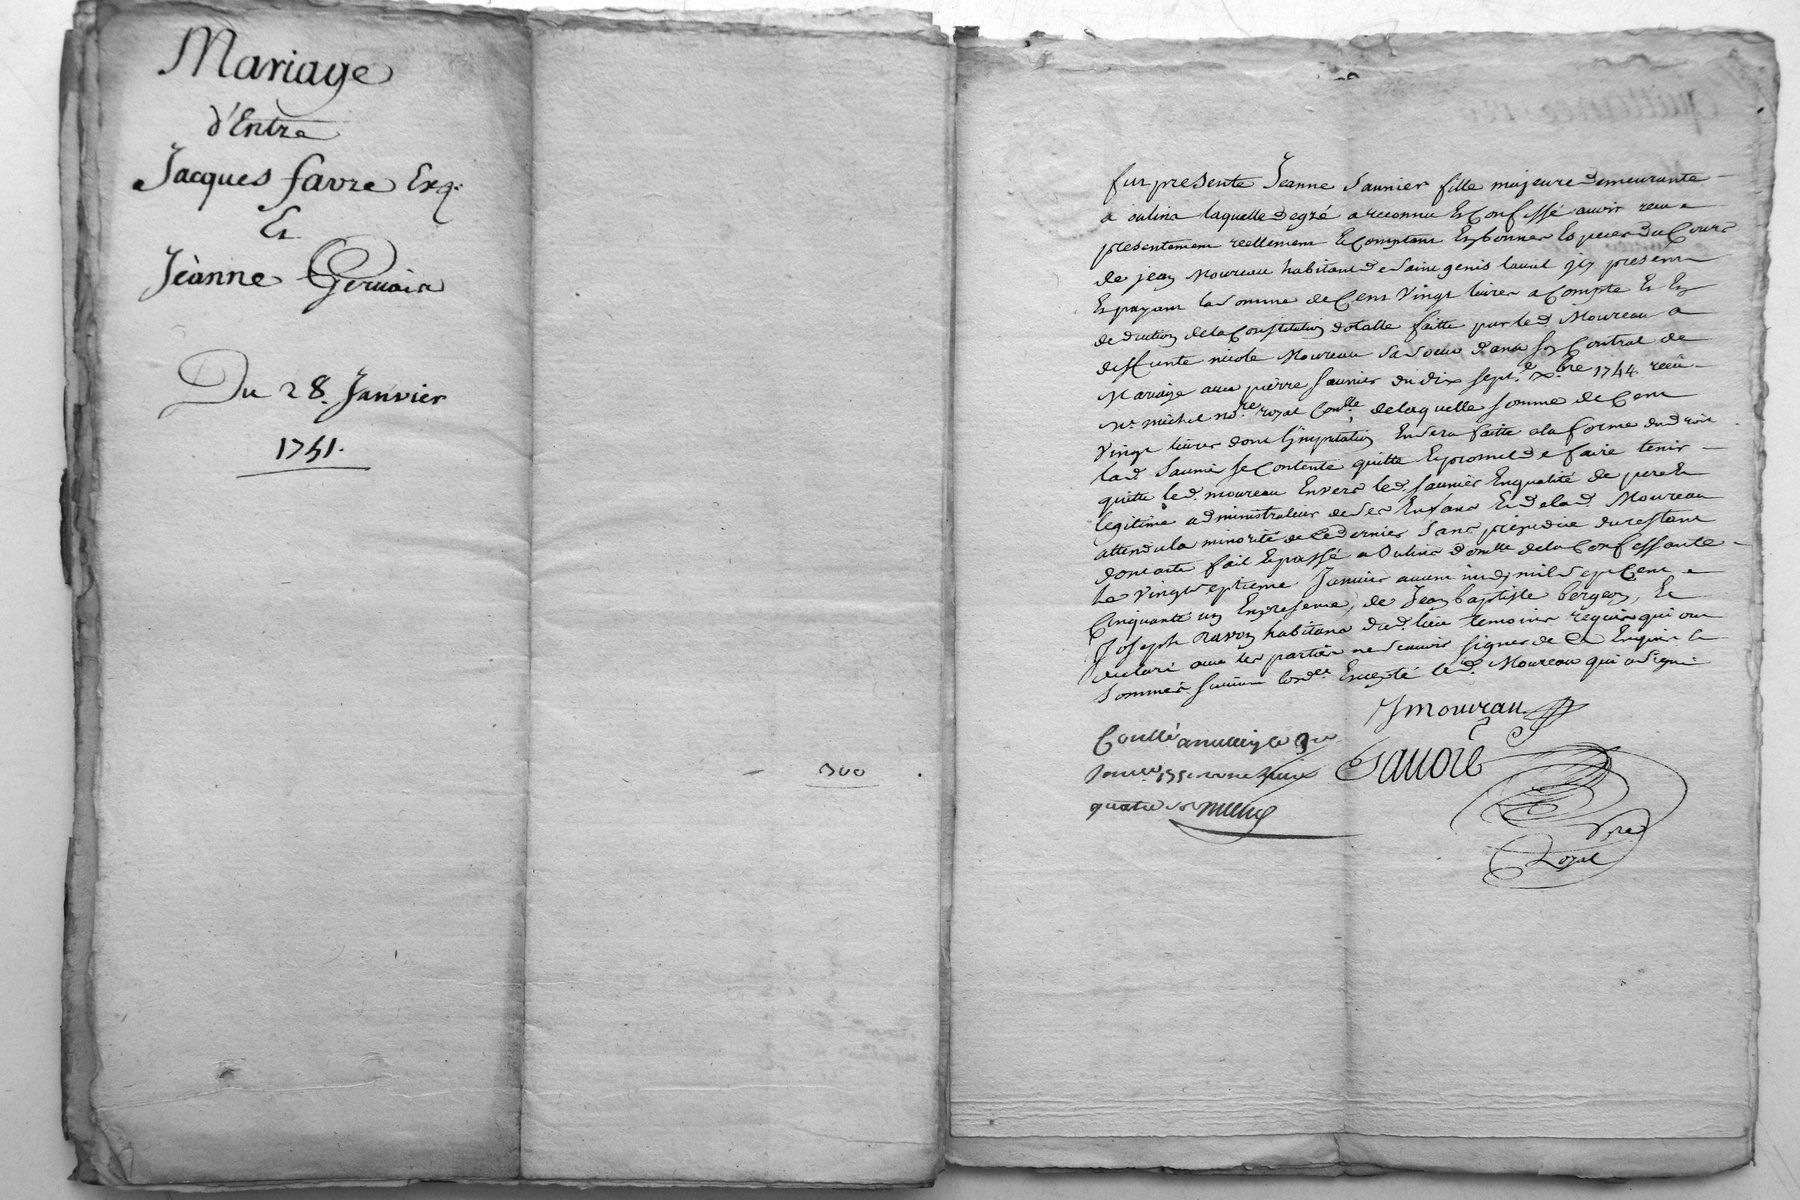 Mariage
d'Entre
Jacques favre Exq.
Et
Jèanne Gervais
Du 28. Janvier
1751.
300
fut presente Jeanne Saunier fille majeure demeurante
a oulins laquelle degré a reconnu Et Confessé avoir reçu
presentement reellement Et Comptant En bonnes Especes du Cours
de jean Moureau habitant de Saint genis laval icy present
Et payant la Somme de Cent Vingt livres a Compte Et En
deduction de la Constitution dotalle faitte par led. Moureau a
deffunte nicole Moureau Sa Soeur dans Son Contrat de
Mariage avec pierre Saunier du dix Sept.e x.bre 1744 reçu
M.e michel no.re royal de laquelle Somme de Cent
Vingt livres dont l'imputation En Sera faitte a la forme du droit
lad. Saunier Se Contente quitte Et promet de faire tenir
quitte led. moureau Envers led. Saunier En qualité de pere Et
legitime administrateur de Ses Enfans Et de lad. Moureau
attendu la minorité de Ce dernier Sans prejudice du restant
dont acte fait Et passé a Oulins dom.lle de la Confessante
le Vingt Septieme Janvier avant midy mil Sept Cent
Cinquante un En presence de Jean baptiste bergeon, Et
Joseph ravon habitans dud. lieu temoins requis qui ont
declaré avec les parties ne Scavoir Signer de Ce Enquis Et
Sommés Suivant l'ord.ce Excepté led. Moureau qui a Signé
J moureau
Conllé
quatre